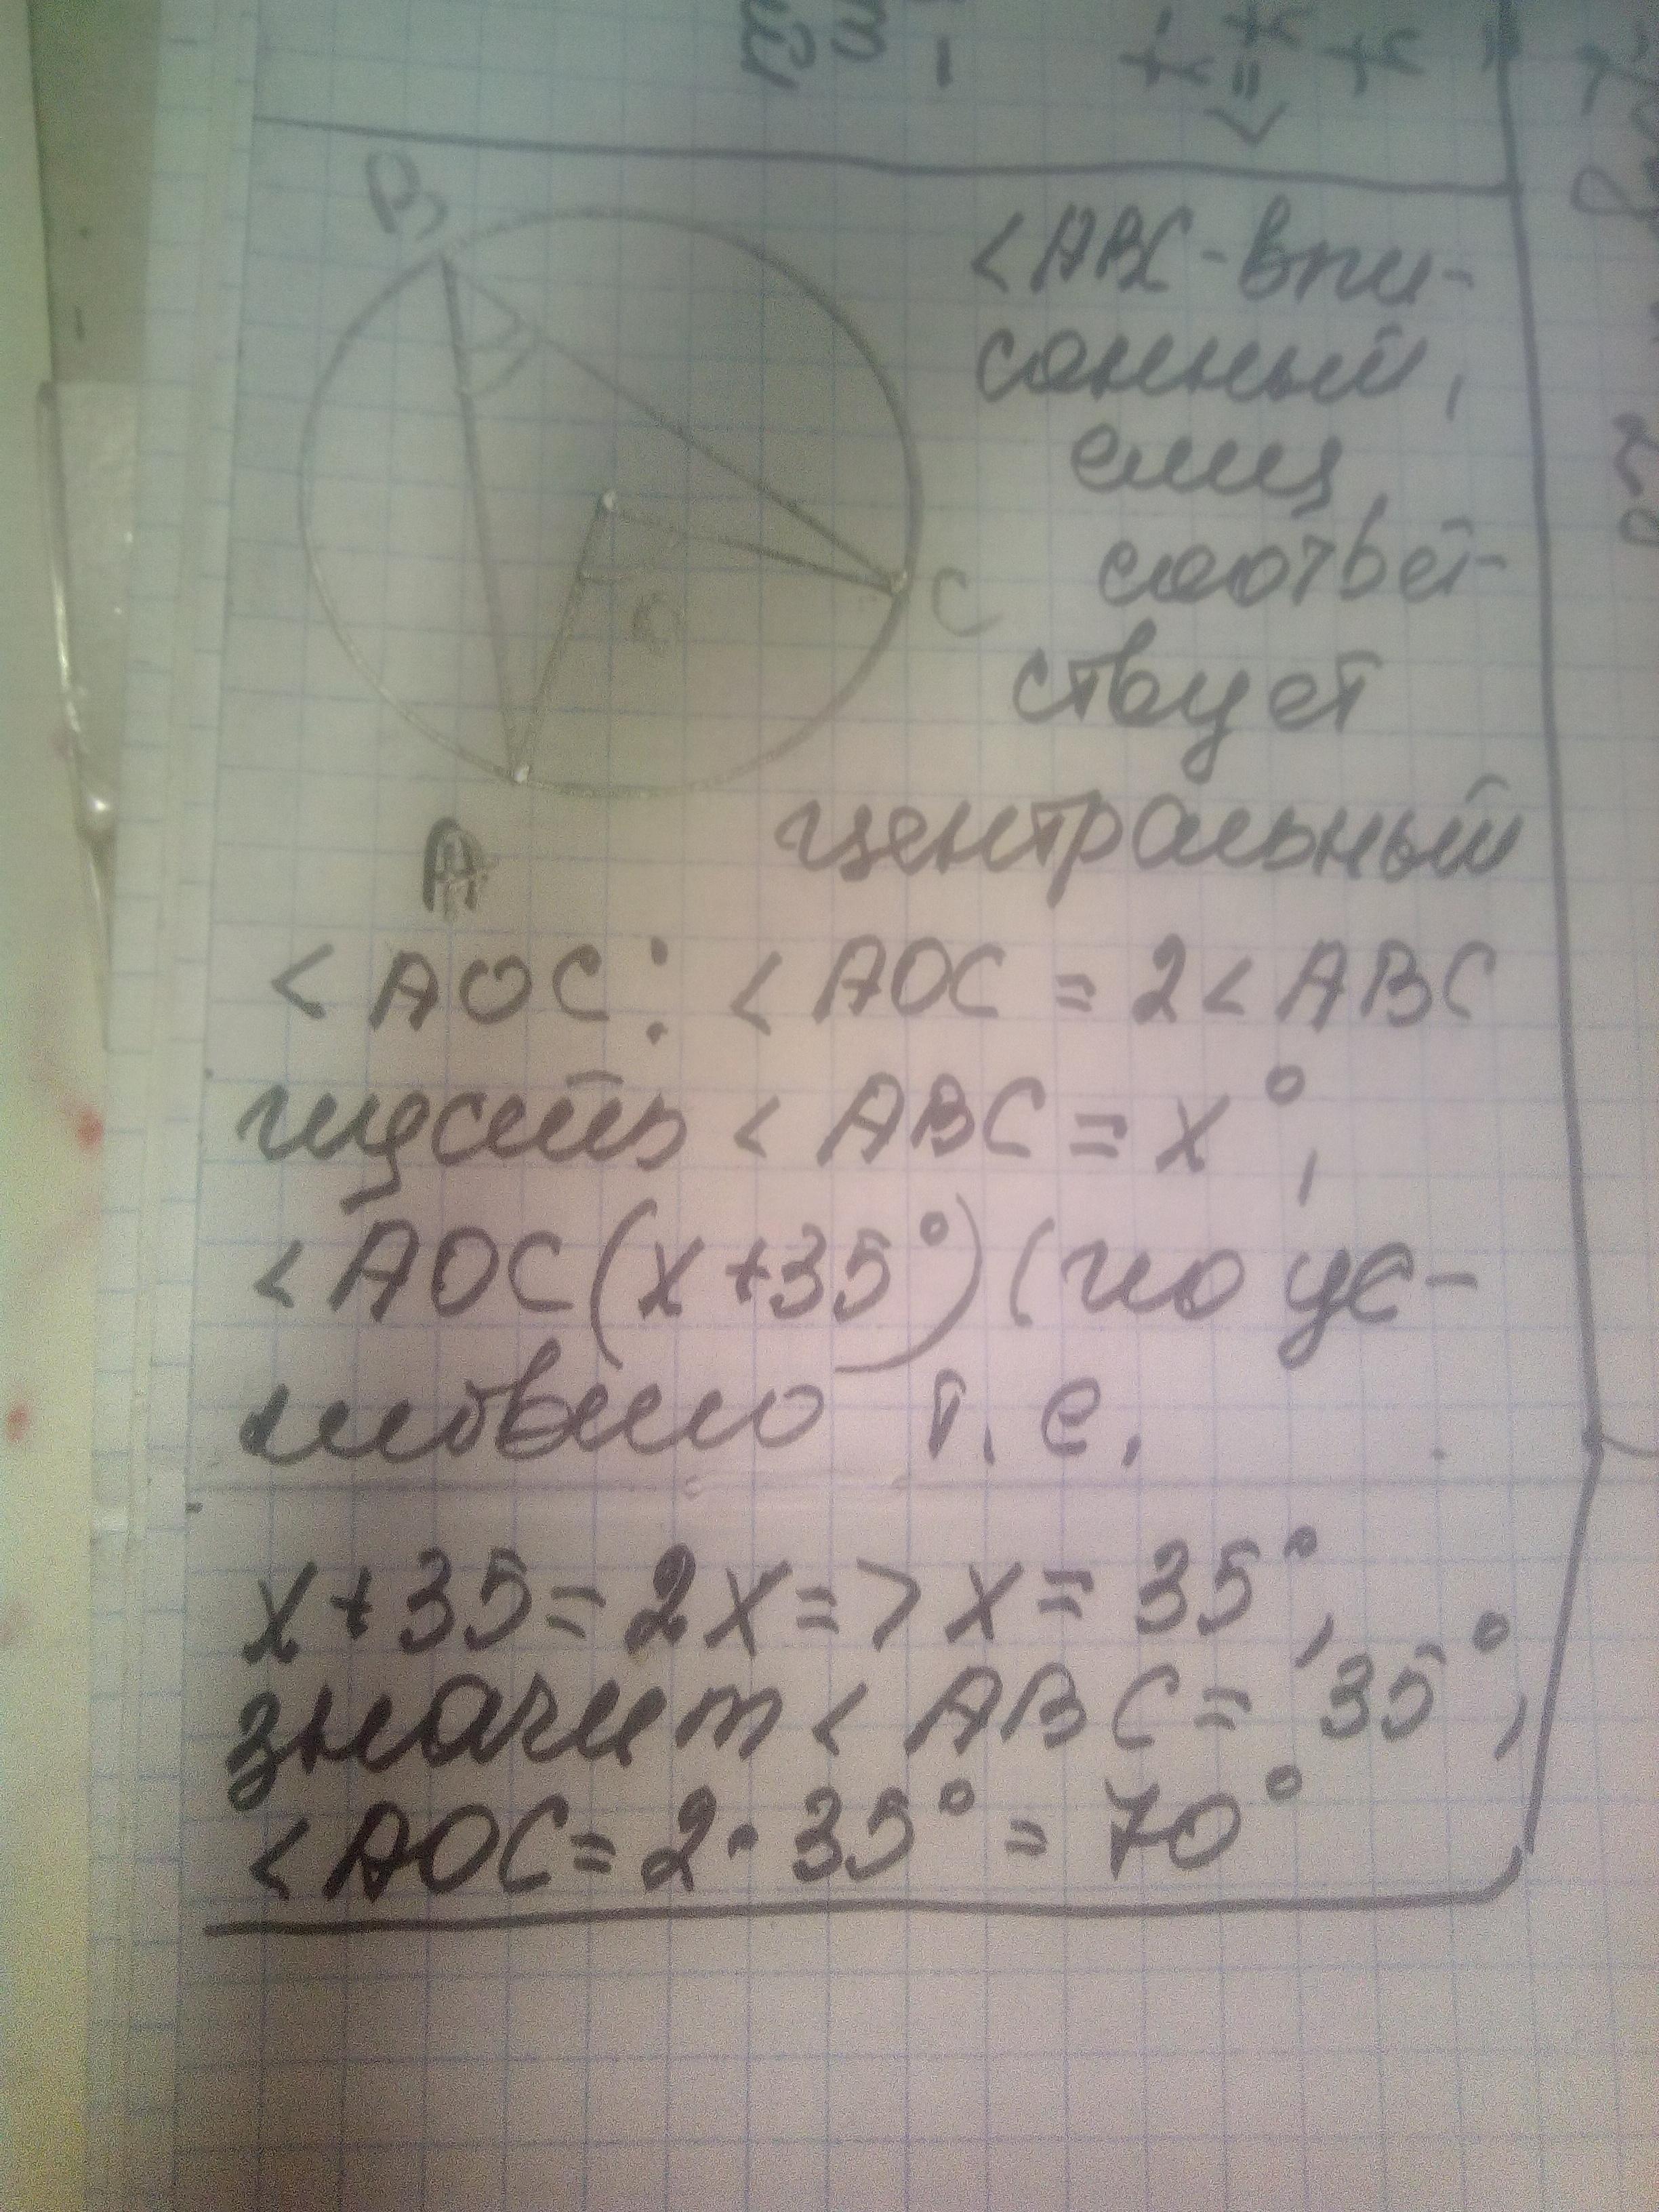 B
<ABC - впи-
санный,
ему
соответ-
ствует
C
O
центральный
A
<AOC: <AOC = 2<ABC
пусть <ABC = x°,
<AOC (x+35°) (по ус-
ловию т.е.
x+35=2x=>x=35°,
значит <ABC = 35°,
<AOC=2·35°=70°